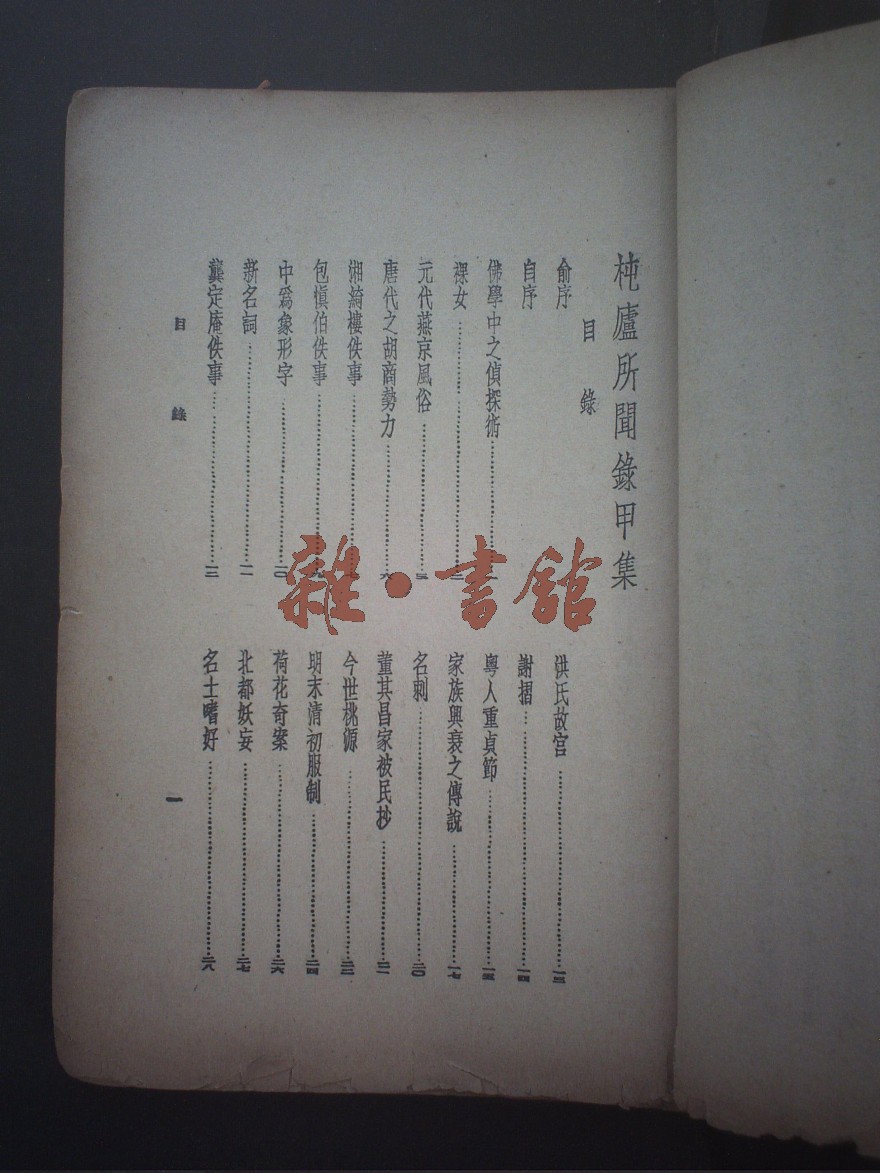 杶廬所聞錄甲集
目錄
俞序
自序
佛學中之偵探術
裸女
元代燕京風俗
唐代之胡商勢力……六
湘綺樓佚事
包慎伯佚事
中爲象形字……一〇
新名詞……一一
龔定庵佚事……一二
洪氏故宮……一三
謝摺……一四
粵人重貞節……一五
家族興衰之傳說……一七
名刺……二〇
董其昌家被民抄……二一
今世桃源
明末清初服制……二四
荷花奇案……二六
北都妖妄……二七
名士嗜好……二八
目錄
一
雜·書館